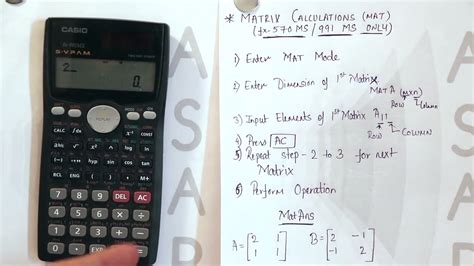 CASIO
S-V.P.A.M.
2
0.
REPLAY
CALC
hyp sin cos tan
7 8 9 DEL AC
4 5 6
1 2
0 . EXP =
* MATRIX CALCULATIONS (MAT)
(fx-570 MS / 991 MS ONLY)
1) Enter MAT Mode
2) Enter Dimension of 1st Matrix
MAT A (mxn)
Row Column
3) Input Elements of 1st Matrix A11
Row COLUMN
4) Press AC
5 Repeat step - 2 to 3 for next
Matrix
6) Perform Operation
MatAns
A = [2 1 B = [2 -1
1 1] -1 2]
A
S
A
R